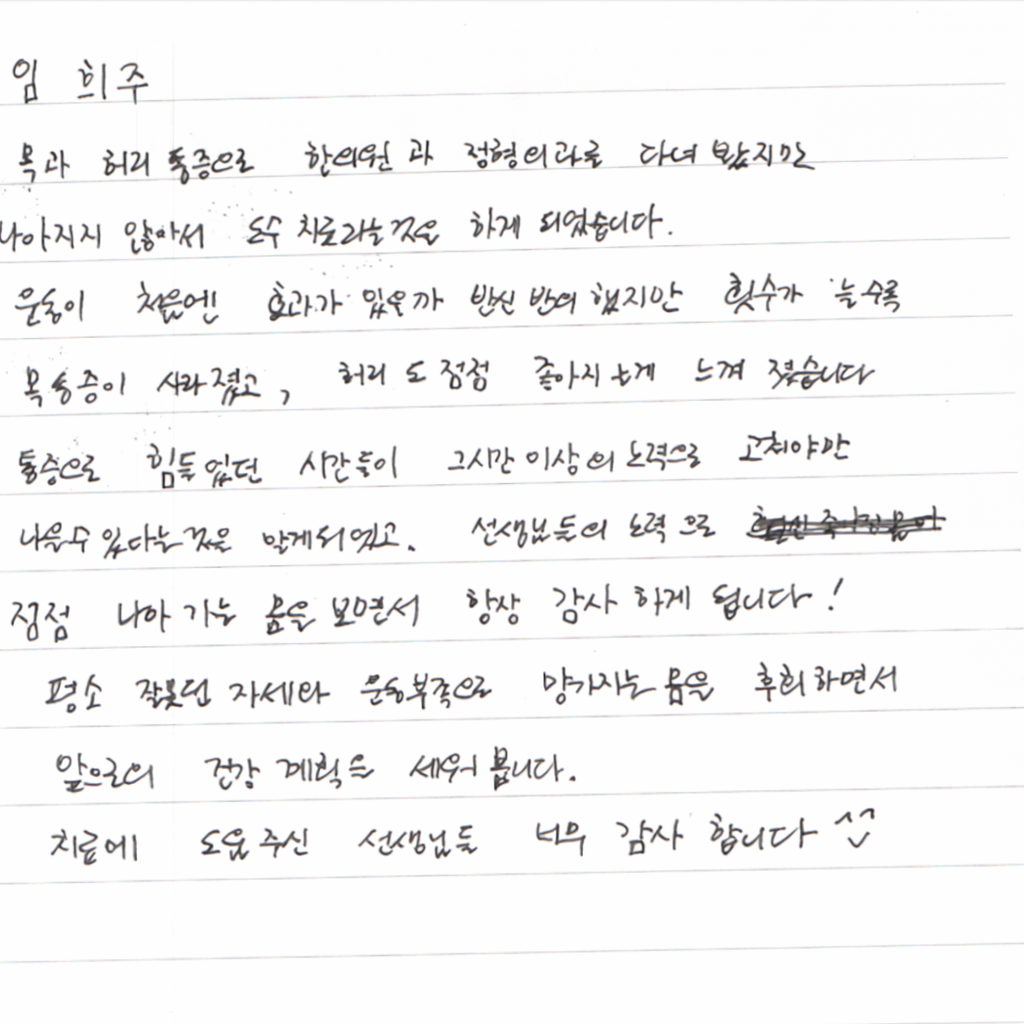 임 희주
목과 허리 통증으로 한의원 과 정형외과를 다녀 봤지만
나아지지 않아서 도수 치료라는것을 하게 되었습니다.
운동이 처음엔 효과가 있을까 반신 반의 했지만 횟수가 늘수록
목 통증이 사라졌고, 허리 도 점점 좋아지는게 느껴 졌습니다
통증으로 힘들었던 시간들이 그시간 이상의 노력으로 고쳐야만
나을수 있다는 것을 알게되었고. 선생님들의 노력 으로
점점 나아 가는 몸을 보면서 항상 감사 하게 됩니다!
평소 잘못된 자세와 운동부족으로 망가지는 몸을 후회하면서
앞으로의 건강 계획을 세워 봅니다.
치료에 도움 주신 선생님들 너무 감사 합니다 ^^